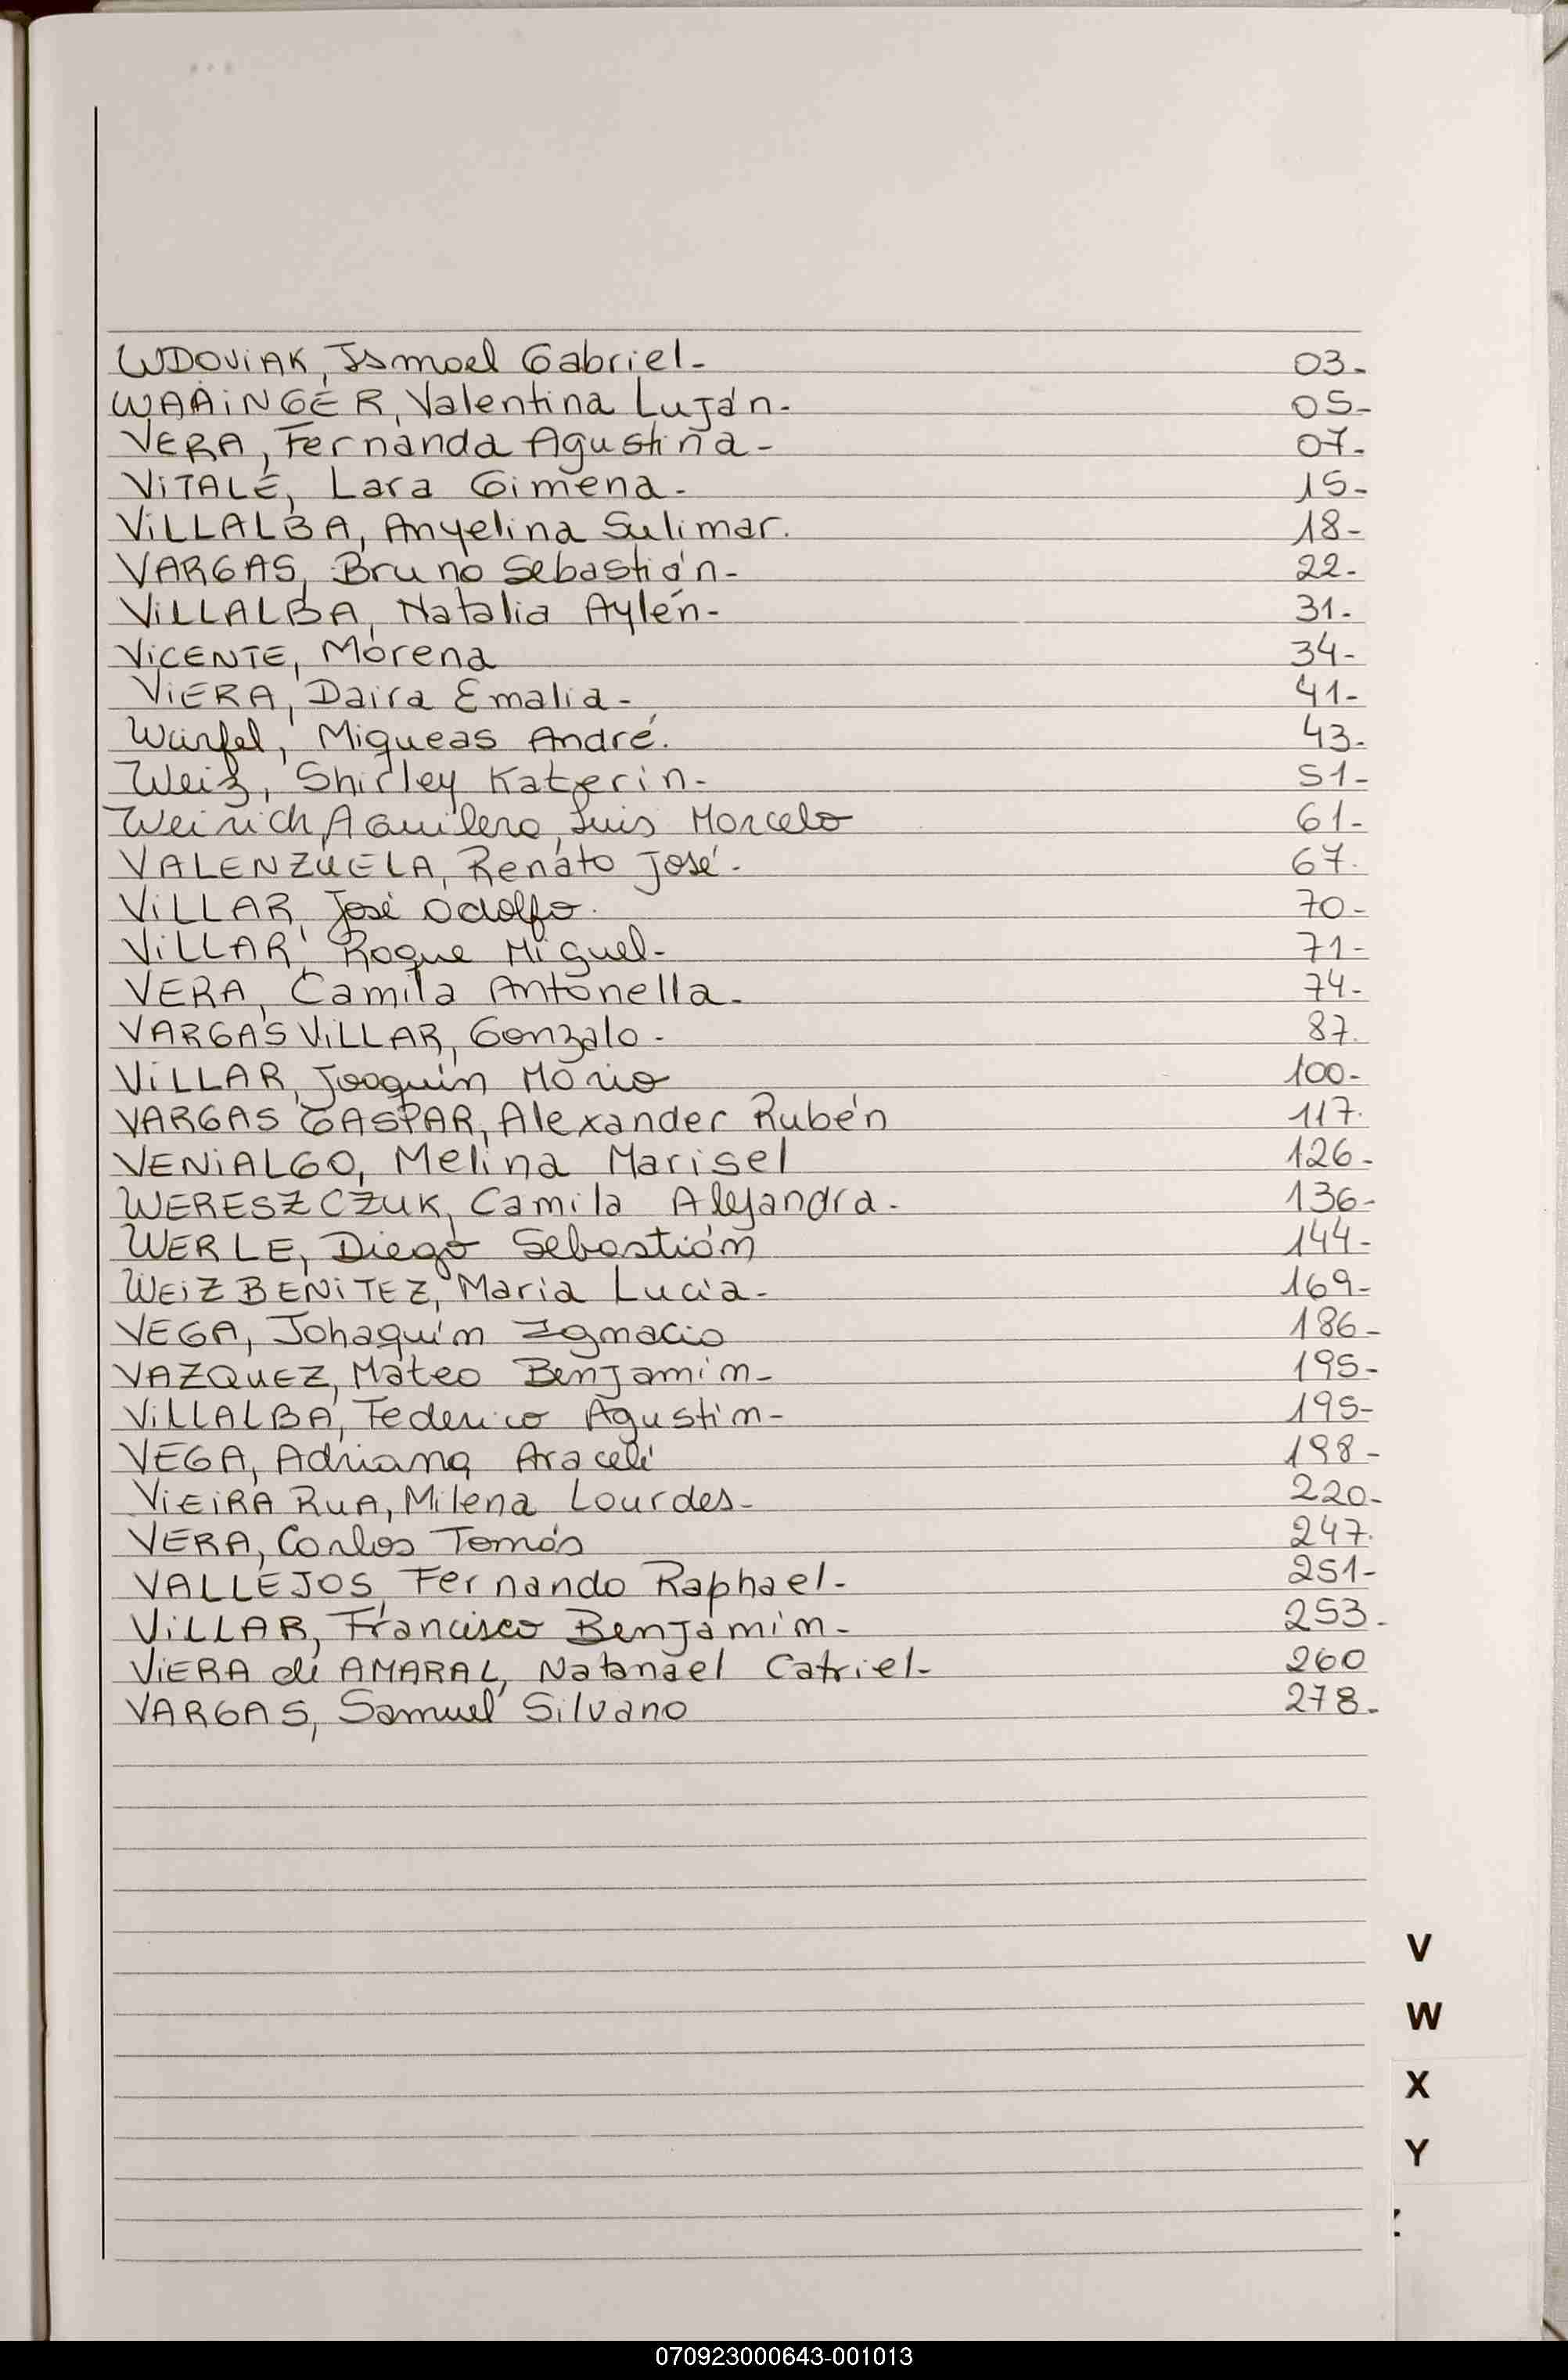 WDOViAK, Ismael Gabriel- 03-
WAAiNGER, Valentina Luján- 05-
VERA, Fernanda Agustina- 07-
ViTALE, Lara Gimena- 15-
ViLLALBA, Anyelina Sulimar. 18-
VARGAS, Bruno Sebastián- 22-
ViLLALBA, Natalia Aylén- 31-
ViCENTE, Morena 34-
ViERA, Daira Emalia- 41-
Würfel, Miqueas André. 43-
Weiz, Shirley Katerin- 51-
Weirich Aguilera, Luis Marcelo 61-
VALENZUELA, Renato José- 67.
ViLLAR, José Odolfo. 70-
ViLLAR, Roque Miguel- 71-
VERA, Camila Antonella- 74-
VARGAS ViLLAR, Gonzalo- 87.
ViLLAR, Joaquín Mario 100-
VARGAS GASPAR, Alexander Rubén 117.
VENiALGO, Melina Marisel 126-
WERESZCZUK, Camila Alejandra- 136-
WERLE, Diego Sebastián 144-
WEiZ BENiTEZ, Maria Lucía- 169-
VEGA, Johaquím Ignacio 186-
VAZQUEZ, Mateo Benjamín- 195-
ViLLALBA, Federico Agustín- 195-
VEGA, Adriana Araceli 198-
ViEiRA RUA, Milena Lourdes- 220-
VERA, Carlos Tomás 247.
VALLEJOS, Fernando Raphael- 251-
ViLLAR, Francisco Benjamín- 253-
ViERA di AMARAL, Natanael Catriel- 260
VARGAS, Samuel Silvano 278-
V
W
X
Y
070923000643-001013